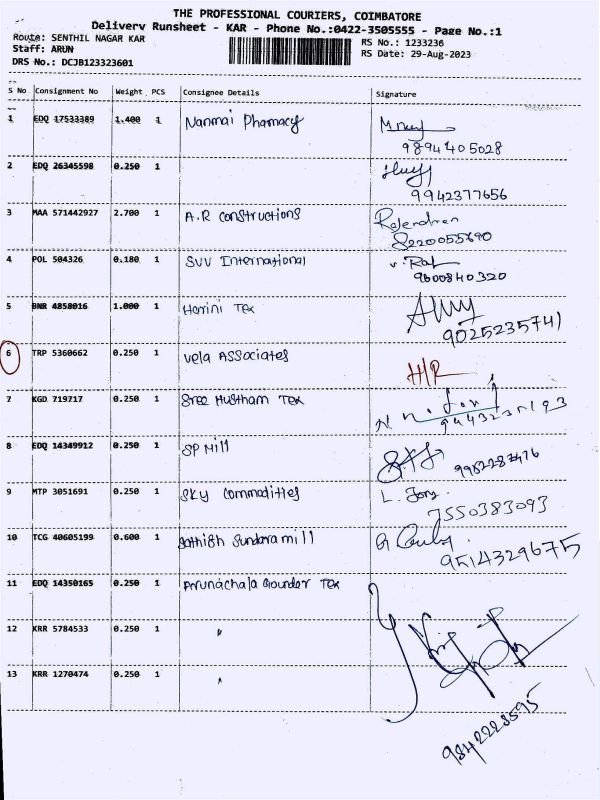 THE PROFESSIONAL COURIERS, COIMBATORE
Delivery Runsheet - KAR - Phone No.:0422-3505555 - Page No.:1
Route: SENTHIL NAGAR KAR
RS No.: 1233236
Staff: ARUN
RS Date: 29-Aug-2023
DRS No.: DCJB123323601
S No Consignment No Weight PCS Consignee Details Signature
1 EDQ 17533389 1.400 1 Nanmai Pharmacy
9894405028
2 EDQ 26345598 0.250 1
9942377656
3 MAA 571442927 2.700 1 A.R constructions Rajendran
8220055690
4 POL 504326 0.180 1 SVV International
9600840320
5 BNR 4858016 1.000 1 Harini Tex
9025235741
6 TRP 5360662 0.250 1 Vela Associates H/R
7 KGD 719717 0.250 1 Sree Hustham Tex
8 EDQ 14349912 0.250 1 SP Mill
9 MTP 3051691 0.250 1 Sky commodities
7550383093
10 TCG 40605199 0.600 1 Sathish Sundara mill
9514329675
11 EDQ 14350165 0.250 1 Arunachala Gounder Tex
12 KRR 5784533 0.250 1 "
13 KRR 1270474 0.250 1 "
9842228595